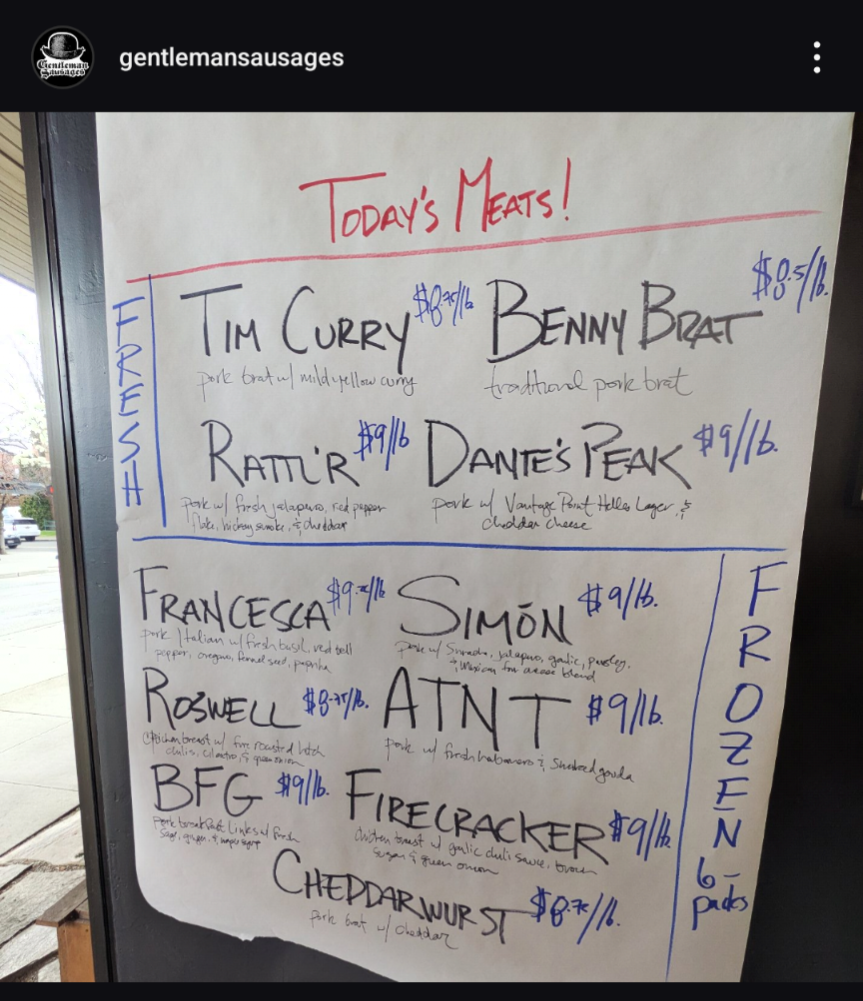 gentlemansausages
Gentleman
Sausages
TODAY'S MEATS!
FRESH
TIM CURRY $8.75/lb
pork brat w/ mild yellow curry
BENNY BRAT $8.5/lb.
traditional pork brat
RATTL'R $9/lb
pork w/ fresh jalapeno, red pepper
flake, hickory smoke, & cheddar
DANTE'S PEAK $9/lb.
pork w/ Vantage Point Helles Lager, &
cheddar cheese
FROZEN
6-
packs
FRANCESCA
pork Italian w/ fresh basil, red bell
pepper, oregano, fennel seed, paprika
SIMÓN $9/lb.
pork w/ jalapeno, garlic, parsley,
blend
ROSWELL $8.75/lb.
Chicken breast w/ fire roasted hatch
chilis, cilantro, & green onion
ATNT $9/lb.
pork w/ fresh habanero & Smoked gouda
BFG $9/lb.
Pork breakfast Links w/ fresh
Sage, ginger, & maple syrup
FIRECRACKER $9/lb
Chicken breast w/ garlic chili sauce, brown
Sugar & green onion
CHEDDARWURST $8.75/lb.
pork brat w/ cheddar